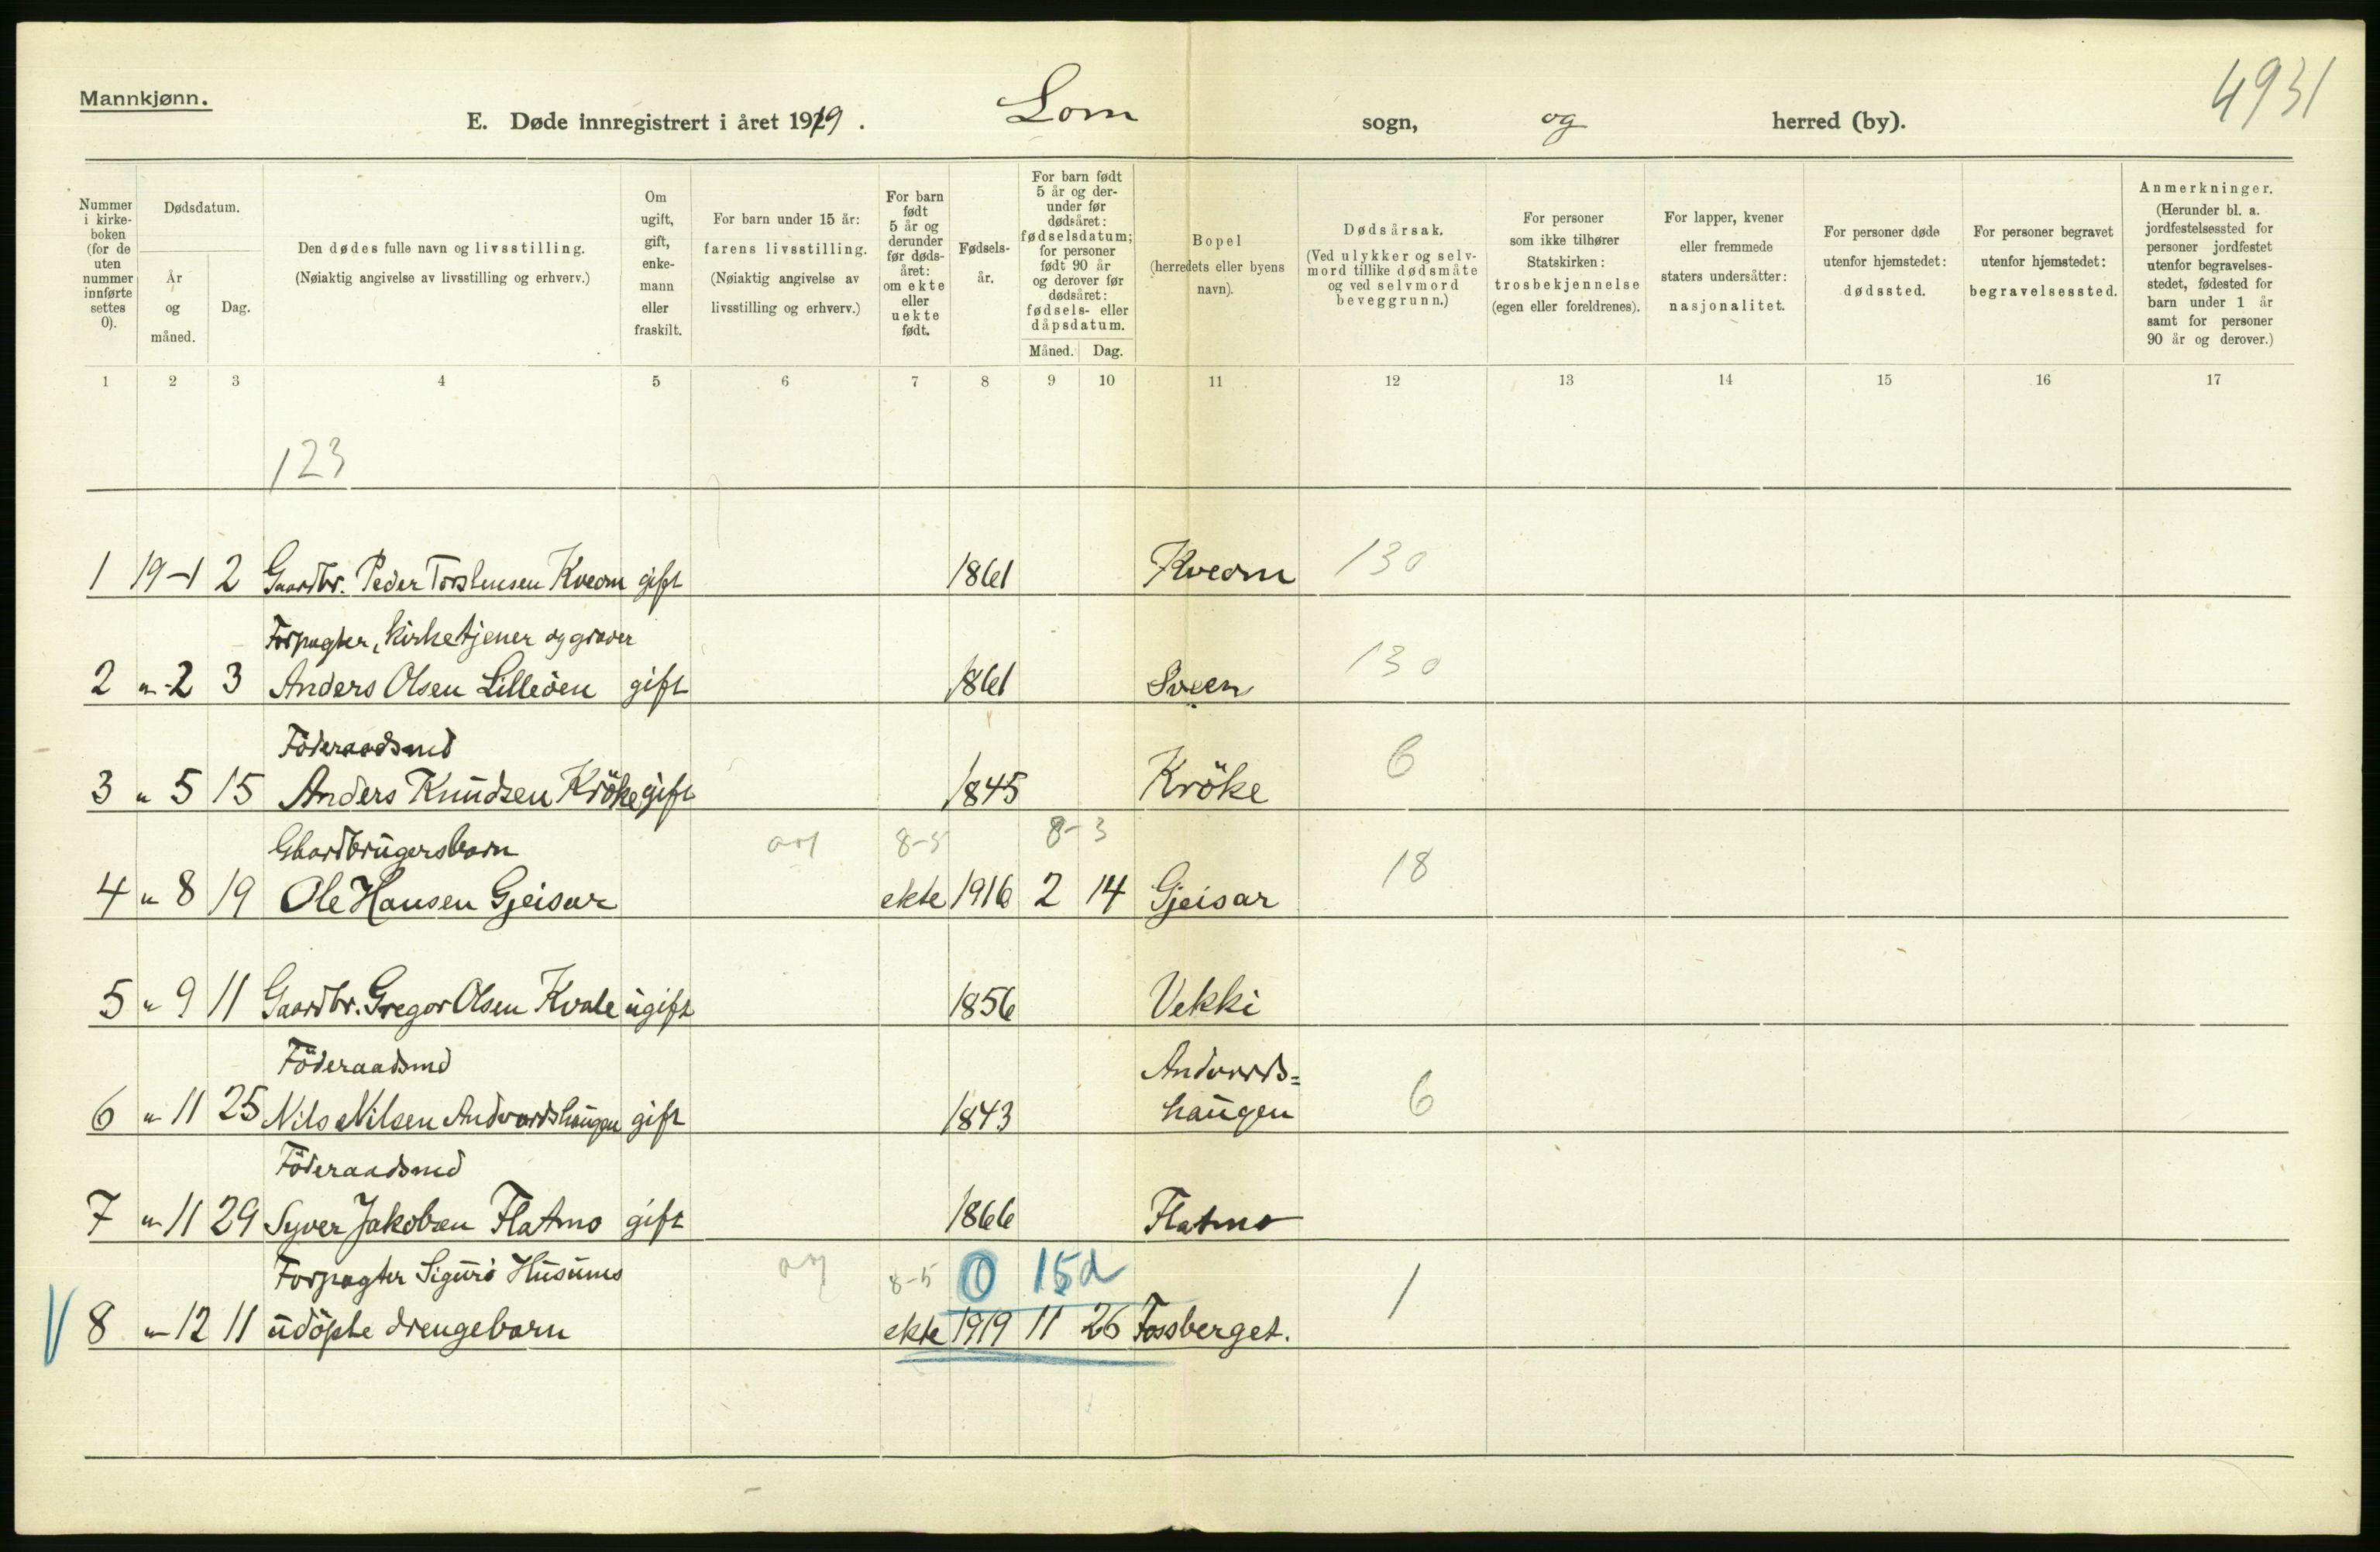 Mannkjønn.
4931
E. Døde innregistrert i året 1919. Lom sogn, og herred (by).
Nummer i kirke- boken (for de uten nummer innførte settes 0).
Dødsdatum.
År og måned.
Dag.
Den dødes fulle navn og livsstilling.
(Nøiaktig angivelse av livsstilling og erhverv.)
Om ugift, gift, enke- mann eller fraskilt.
For barn under 15 år:
farens livsstilling.
(Nøiaktig angivelse av livsstilling og erhverv.)
For barn født 5 år og derunder før døds- året: om ekte eller uekte født.
Fødsels- år.
For barn født 5 år og der- under før dødsåret: fødselsdatum; for personer født 90 år og derover før dødsåret: fødsels- eller dåpsdatum.
Måned. Dag.
Bopel
(herredets eller byens navn).
Dødsårsak.
(Ved ulykker og selv- mord tillike dødsmåte og ved selvmord beveggrunn.)
For personer som ikke tilhører Statskirken: trosbekjennelse (egen eller foreldrenes).
For lapper, kvener eller fremmede staters undersåtter: nasjonalitet.
For personer døde utenfor hjemstedet: dødssted.
For personer begravet utenfor hjemstedet: begravelsessted.
Anmerkninger.
(Herunder bl. a. jordfestelsessted for personer jordfestet utenfor begravelses- stedet, fødested for barn under 1 år samt for personer 90 år og derover.)
1 2 3 4 5 6 7 8 9 10 11 12 13 14 15 16 17
123
1 19-1 2 Gaardbr. Peder Torstensen Kveom gift 1861 Kveom 130
Forpagter, kirketjener og graver
2 " -2 3 Anders Olsen Lilleöen gift 1861 Sveen 130
Föderaadsmd
3 " 5 15 Anders Knudsen Kröke gift 1845 Kröke 6
Gaardbrugersbarn 8-5 8-3
4 " 8 19 Ole Hansen Gjeisar ekte 1916 2 14 Gjeisar 18
5 " 9 11 Gaardbr. Gregor Olsen Kvale ugift 1856 Vekki
Föderaadsmd Andvords=
6 " 11 25 Nils Nilsen Andvordshaugen gift 1843 haugen 6
Föderaadsmd
7 " 11 29 Syver Jakobsen Flatmo gift 1866 Flatmo
Forpagter Sigurd Husums 8-5 0 15d
V 8 " -12 11 udöpte drengebarn ekte 1919 11 26 Fossberget. 1